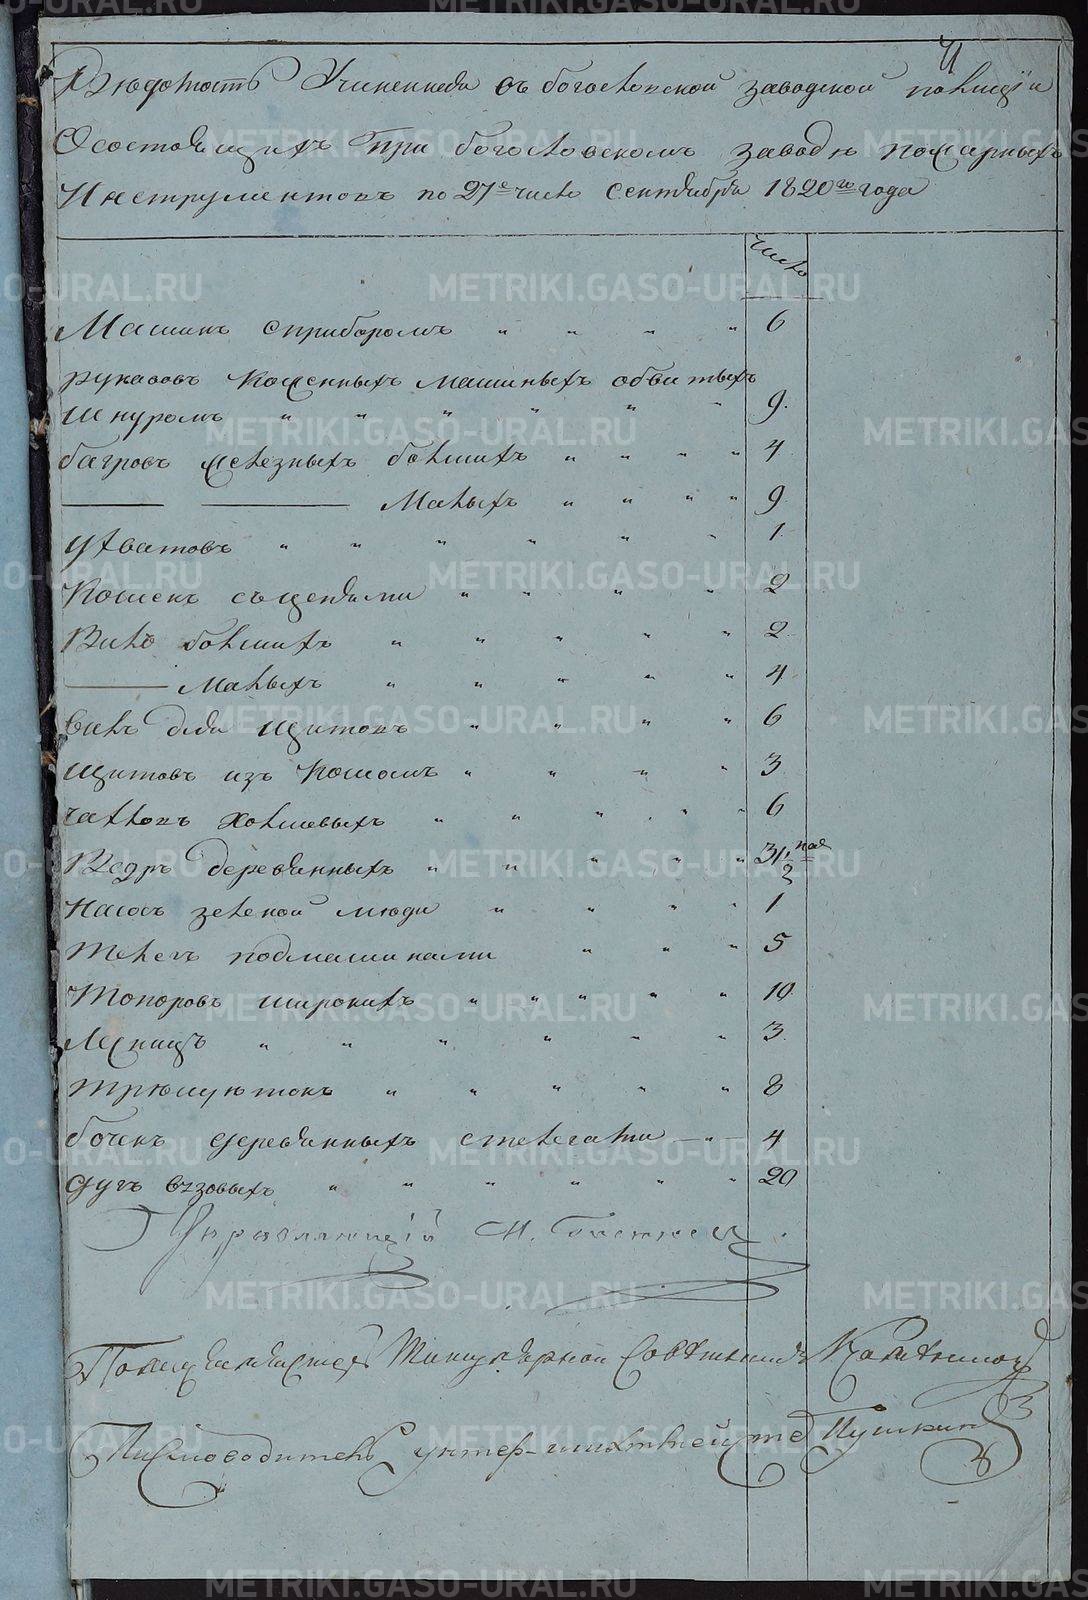 41
Ведомость Учиненная въ богословской заводской полицїи
О состоящихъ При богословскомъ заводе пожарныхъ
Инструментовъ по 27е число Сентября 1820го года
число
Машинъ с приборомъ " " " " 6
рукавовъ кожанныхъ машинныхъ обвитыхъ
шнуромъ " " " " " " 9.
багровъ железныхъ большихъ " " " " 4
——— ——— Малыхъ " " " " 9
ухватовъ " " " " " " 1.
Кошекъ съ цепями " " " " 2
Вилъ большихъ " " " " " 2.
——— Малыхъ " " " " " 4
вилъ для щитовъ " " " " 6
щитовъ изъ Кошомъ " " " " 3
чахловъ холщевыхъ " " " " " 6
Ведръ деревянныхъ " " " " " 31,
Насосъ зеленой меди " " " " 1
телегъ подмашинами " " " 5
Топоровъ широкихъ " " " " " 10.
Лесницъ " " " " " " 3.
трещетокъ " " " " " 8
бочекъ деревянныхъ стелегами — " — 4
дугъ вязовыхъ " " " " " " 20
Управляющїй М.
Полицмейстер Титулярной Советникъ
Писмоводитель унтер-шихтмейстер Пушкин
METRIKI.GASO-URAL.RU